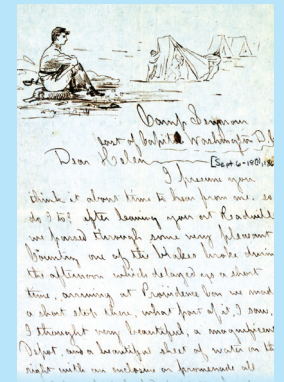 Camp
east of Capitol Washington D.C.
[Sept 6-
Dear Helen
I presume you
think it about time to hear from me, so
do I too, after leaving you at Readville
we passed through some very pleasant
Country one of the brakes broke during
the afternoon which delayed us a short
time, arriving at Providence we made
a short stop there, what part of it I saw,
I thought very beautiful, a magnificent
Depot, and a beautiful sheet of water on the
right with an inclosure or promenade all